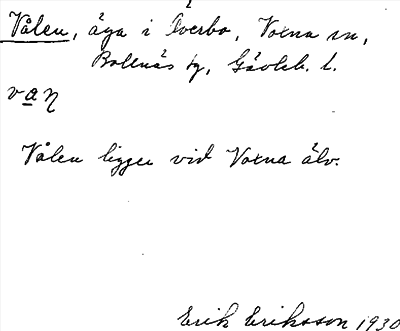 Vålen, äga i Överbo, Voxna sn,
Bollnäs tg, Gävleb. l.
van
Vålen ligger vid Voxna älv.
Erik Eriksson 1930